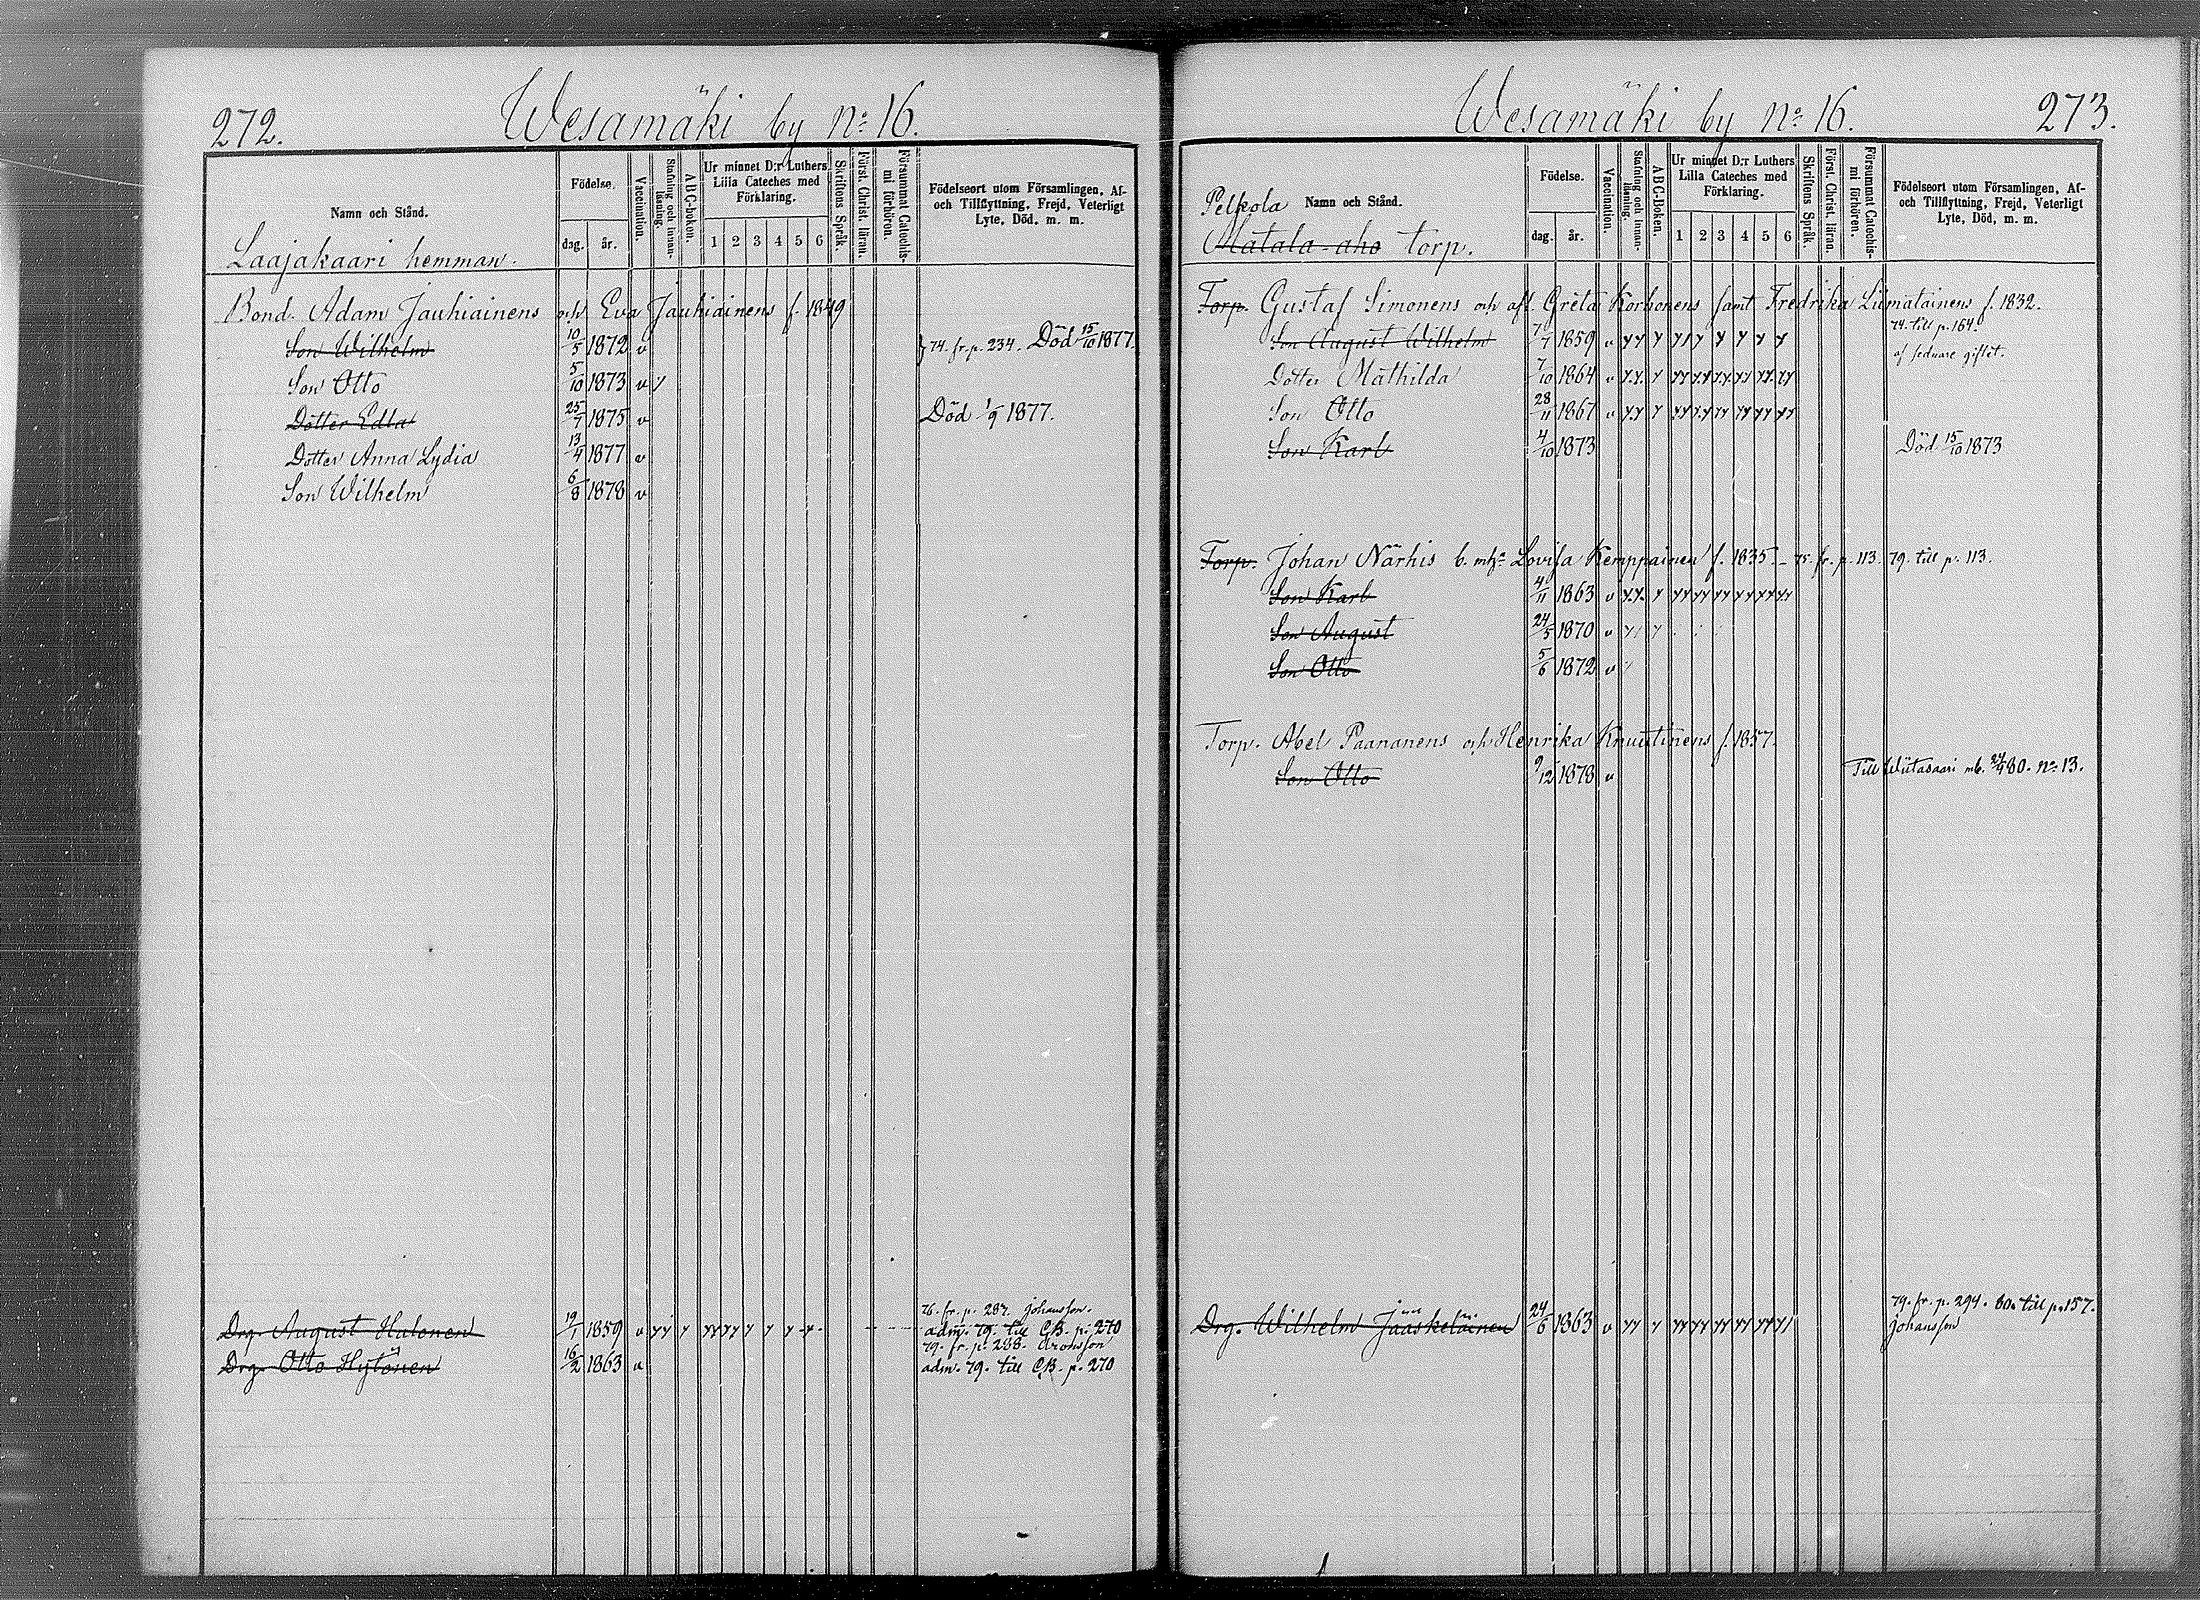 272.
Wesamäki by No 16.
Namn och Stånd.
Födelse.
dag. år.
Vaccination.
Stafning och innan-läsning.
ABC-boken.
Ur minnet D:r Luthers Lilla Cateches med Förklaring.
1 2 3 4 5 6
Skriftens Språk.
Först. Christ. läran.
Försummat Catechis-mi förhören.
Födelseort utom Församlingen, Af-
och Tillflyttning, Frejd, Veterligt
Lyte, Död, m. m.
Laajakaari hemman.
Bond. Adam Jauhiainens och Eva Jauhiainens f. 1849
Son Wilhelm 10/5 1872 v 74. fr. p. 234. Död 15/10 1877
Son Otto 5/10 1873 v y
Dotter Edla 25/7 1875 v Död 1/9 1877.
Dotter Anna Lydia 13/4 1877 v
Son Wilhelm 6/8 1878 v
76. fr. p. 287. Johansson.
Drg. August Halonen 19/1 1859 v yy y yy yy y y y y adm. 79. till CB. p. 270
79. fr. p. 288. Aronsson
Drg. Otto Hytönen 16/2 1863 v adm. 79. till CB. p. 270
273.
Wesamäki by No 16.
Namn och Stånd.
Födelse.
dag. år.
Vaccination.
Stafning och innan-läsning.
ABC-boken.
Ur minnet D:r Luthers Lilla Cateches med Förklaring.
1 2 3 4 5 6
Skriftens Språk.
Först. Christ. läran.
Försummat Catechis-mi förhören.
Födelseort utom Församlingen, Af-
och Tillflyttning, Frejd, Veterligt
Lyte, Död, m. m.
Pelkola
Matala-aho torp.
Torp. Gustaf Simonens och afl. Greta Korhonens samt Fredrika Liimatainens f. 1832.
Son August Wilhelm 7/7 1859 v yy y y y y y y y 74. till p. 164.
af sednare giftet.
Dotter Mathilda 7/10 1864 v yy y yy yy yy yy yy yy
Son Otto 28/11 1867 v yy y yy yy yy yy yy yy
Son Karl 4/10 1873 Död 15/10 1873
Torp. Johan Närhis b. mh. Lovisa Kemppainen f. 1835. - 75. fr. p. 113. 79. till p. 113.
Son Karl 4/11 1863 v yy y yy yy yy yy yy yy
Son August 24/5 1870 v y y
Son Otto 5/6 1872 v
Torp. Abel Paananens och Henrika Knuutinens f. 1857.
Son Otto 9/12 1878 v Till Wiitasaari mb. 24/4 80. No 13.
79. fr. p. 294. 80. till p. 157.
Drg. Wilhelm Jääskeläinen 24/6 1863 v yy y yy yy yy yy yy y Johansson